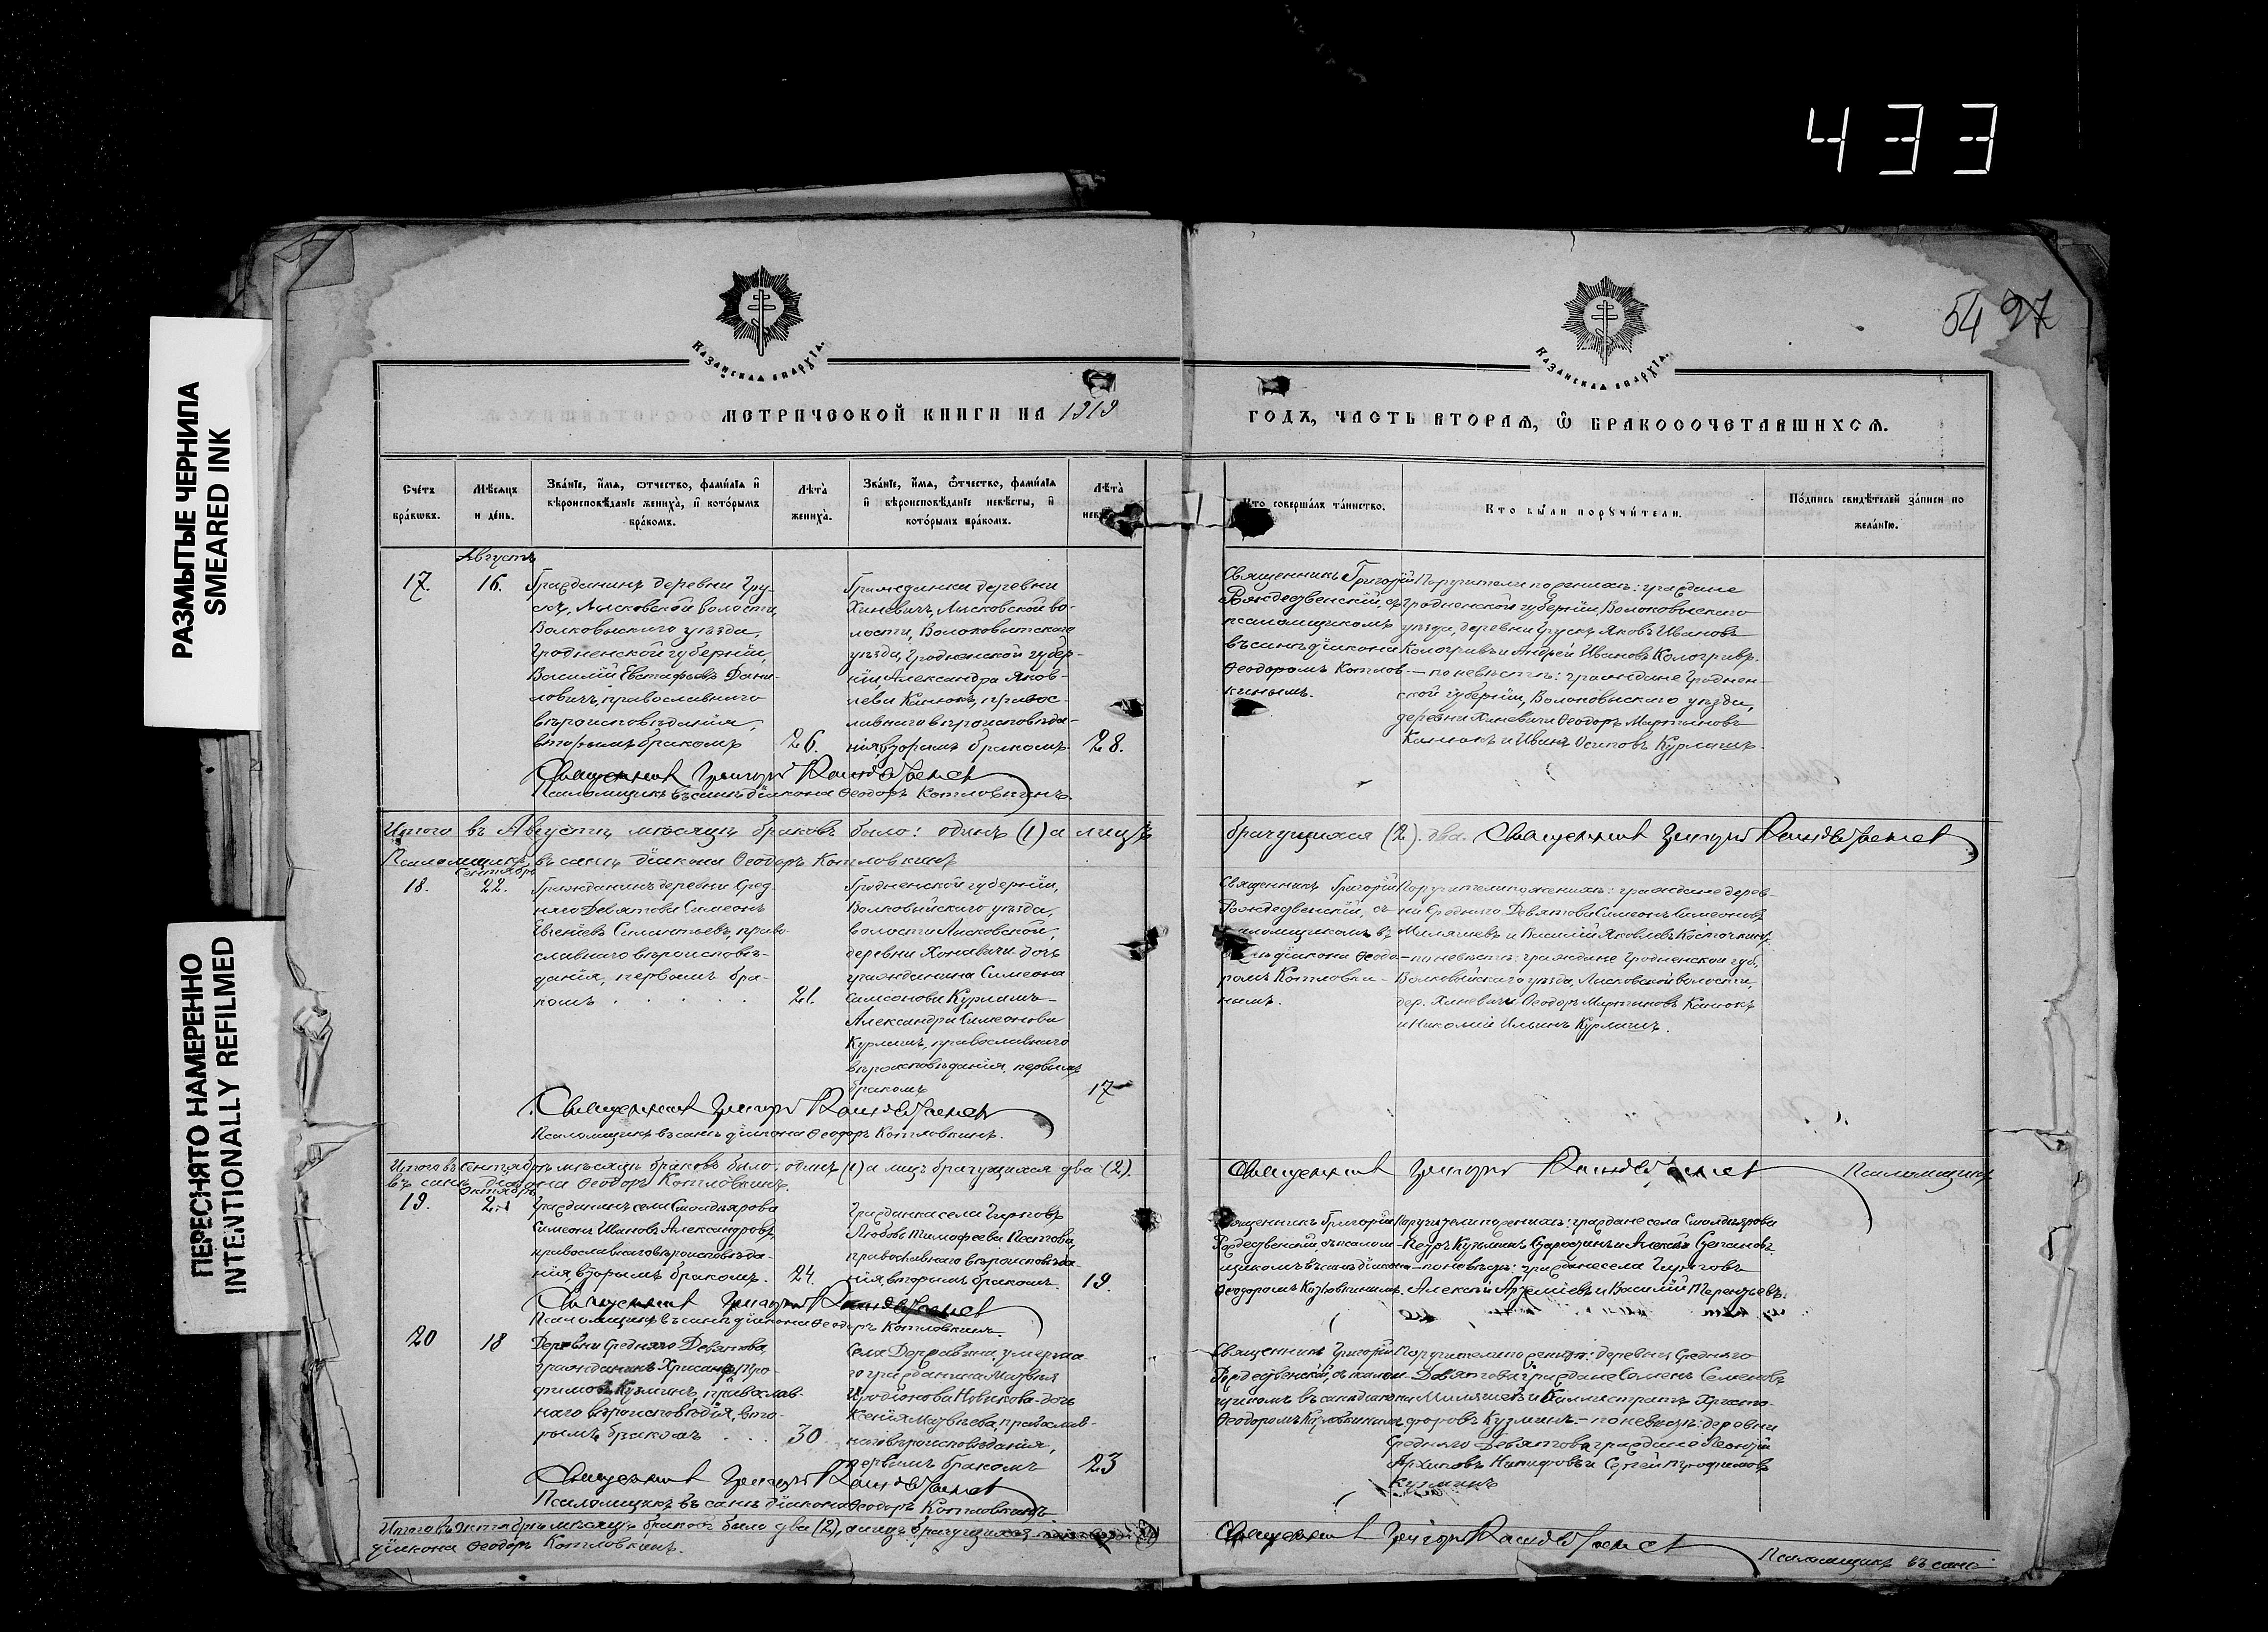 433
РАЗМЫТЫЕ ЧЕРНИЛА
SMEARED INK
ПЕРЕСНЯТО НАМЕРЕННО
INTENTIONALLY REFILMED
54 97
Казанская епархїа.
Казанская епархїа.
МЕТРИЧЕСКОЙ КНИГИ НА 1919
ГОДЪ, ЧАСТЬ ВТОРАЯ, Ѽ БРАКОСОЧЕТАВШИХСЯ.
Счетъ браковъ.
Мѣсяцъ и день.
Званїе, имя, отчество, фамилїя и
вѣроисповѣданїе жениха, и которымъ
бракомъ.
Лѣта
жениха.
Званїе, имя, отчество, фамилїя
и вѣроисповѣданїе невѣсты, и
которымъ бракомъ.
Лѣта
Кто совершалъ таинство.
Кто были поручители.
Подпись свидѣтелей записи по
желанїю.
Августъ
17.
16.
Гражданинъ деревни Гру-
скъ, Лысковской волости,
Волковыского уѣзда,
Гродненской губернїи,
Василїй Евстафьевъ Дани-
ловичъ, православнаго
вѣроисповѣданїя,
вторымъ бракомъ
26.
Гражданка деревни
Хиневичъ, Лысковской во-
лости, Волоковытского
уѣзда, Гродненской губер-
нїи, Александра Яков-
лева Канюкъ, правос-
лавнаго вѣроисповѣда-
нїя, вторымъ бракомъ
28.
Священникъ Григорїй
Рождественскїй, съ
псаломщикомъ
въ санѣ дїакона
Ѳеодоромъ Котлов-
кинымъ.
Поручители по женихѣ: граждане
Гродненской губернїи, Волоковыского
уѣзда, деревни Грускъ Яковъ Ивановъ
Кологривъ и Андрей Ивановъ Кологривъ.
— по невѣстѣ: граждане Гроднен-
ской губернїи, Волоковыского уѣзда,
деревни Хиневичи Ѳеодоръ Мартиновъ
Канюкъ и Иванъ Осиповъ Курлашъ.
Священникъ Григорій Рождественскій
Псаломщикъ въ санѣ дїакона Ѳеодоръ Котловкинъ.
Итого въ Августѣ мѣсяцѣ браковъ было: одинъ (1) а лицъ
брачущихся (2) два. Священникъ Григорій Рождественскій
Псаломщикъ въ санѣ дїакона Ѳеодоръ Котловкинъ
Сентябрь
18.
22.
Гражданинъ деревни Сред-
няго Девятова Симеонъ
Евгенїевъ Силантьевъ, право-
славнаго вѣроисповѣ-
данїя, первымъ бра-
комъ
21.
Гродненской губернїи,
Волковыйскаго уѣзда,
волости Лысковской,
деревни Хиневичи дочь
гражданина Симеона
Самсонова Курлашъ-
Александра Симеонова
Курлашъ, православнаго
вѣроисповѣданїя, первымъ
бракомъ
17
Священникъ Григорїй
Рождественскїй, съ
Ѳеодо-
ромъ Котловки-
нымъ.
Поручители по женихѣ: граждане дерев-
ни Средняго Девятова Симеонъ Симеоновъ
Миляшевъ и Василїй Яковлевъ Косточкинъ,
— по невѣстѣ: граждане Гродненской губ.,
Волковыйскаго уѣзда, Лысковской волости,
дер. Хиневичи Ѳеодоръ Мартиновъ Канюкъ
и Николай Ильинъ Курлашъ.
Священникъ Григорій Рождественскій
Псаломщикъ въ санѣ дїакона Ѳеодоръ Котловкинъ.
Итого въ сентябрѣ мѣсяцѣ браковъ было: одинъ (1) а лицъ брачущихся два (2).
Священникъ Григорій Рождественскій Псаломщикъ
въ санѣ дїакона Ѳеодоръ Котловкинъ.
Октябрь
19.
Гражданинъ села Смолдеярова
Симеонъ Ивановъ Александровъ,
православнаго вѣроисповѣда-
нїя, вторымъ бракомъ.
24.
Гражданка села
Любовь Тимофеева
православнаго вѣроисповѣда-
нїя вторымъ бракомъ.
19.
Священникъ Григорїй
Рождественскїй, съ псалом-
щикомъ въ санѣ дїакона
Ѳеодоромъ Котловкинымъ.
Поручители по женихѣ: граждане села Смолдеярова
Петръ Кузьминъ Старостинъ и Алексѣй Степановъ.
— по невѣстѣ: граждане села
Алексѣй Артемїевъ и Василїй Терентьевъ.
Священникъ Григорій Рождественскій
Псаломщикъ въ санѣ дїакона Ѳеодоръ Котловкинъ.
20
18
Деревни Средняго Девятова,
гражданинъ Хрисанѳъ Тро-
фимовъ Кузминъ, православ-
наго вѣроисповѣдїя, вто-
рымъ бракомъ
30
Села Державина, умерша-
го гражданина Матвѣя
Иродїонова Новикова-дочь
Ксенїя Матвѣева, православ-
наго вѣроисповѣданїя,
первымъ бракомъ
23
Священникъ Григорїй
Рождественскїй, съ псалом-
щикомъ въ санѣ дїакона
Ѳеодоромъ Котловкинымъ
Поручители по женихѣ: деревни Средняго
Девятова граждане Семенъ Семеновъ
Миляшевъ и Каллистратъ Христо-
форовъ Кузминъ. — по невѣстѣ: деревни
Средняго Девятова граждане Леонтїй
Архиповъ Никифоровъ и Сергѣй Трофимовъ
Кузминъ
Священникъ Григорій Рождественскій
Псаломщикъ въ санѣ дїакона Ѳеодоръ Котловкинъ.
Итого въ октябрѣ мѣсяцѣ браковъ было два (2), а лицъ брачущихся
Священникъ Григорій Рождественскій Псаломщикъ въ санѣ
дїакона Ѳеодоръ Котловкинъ.